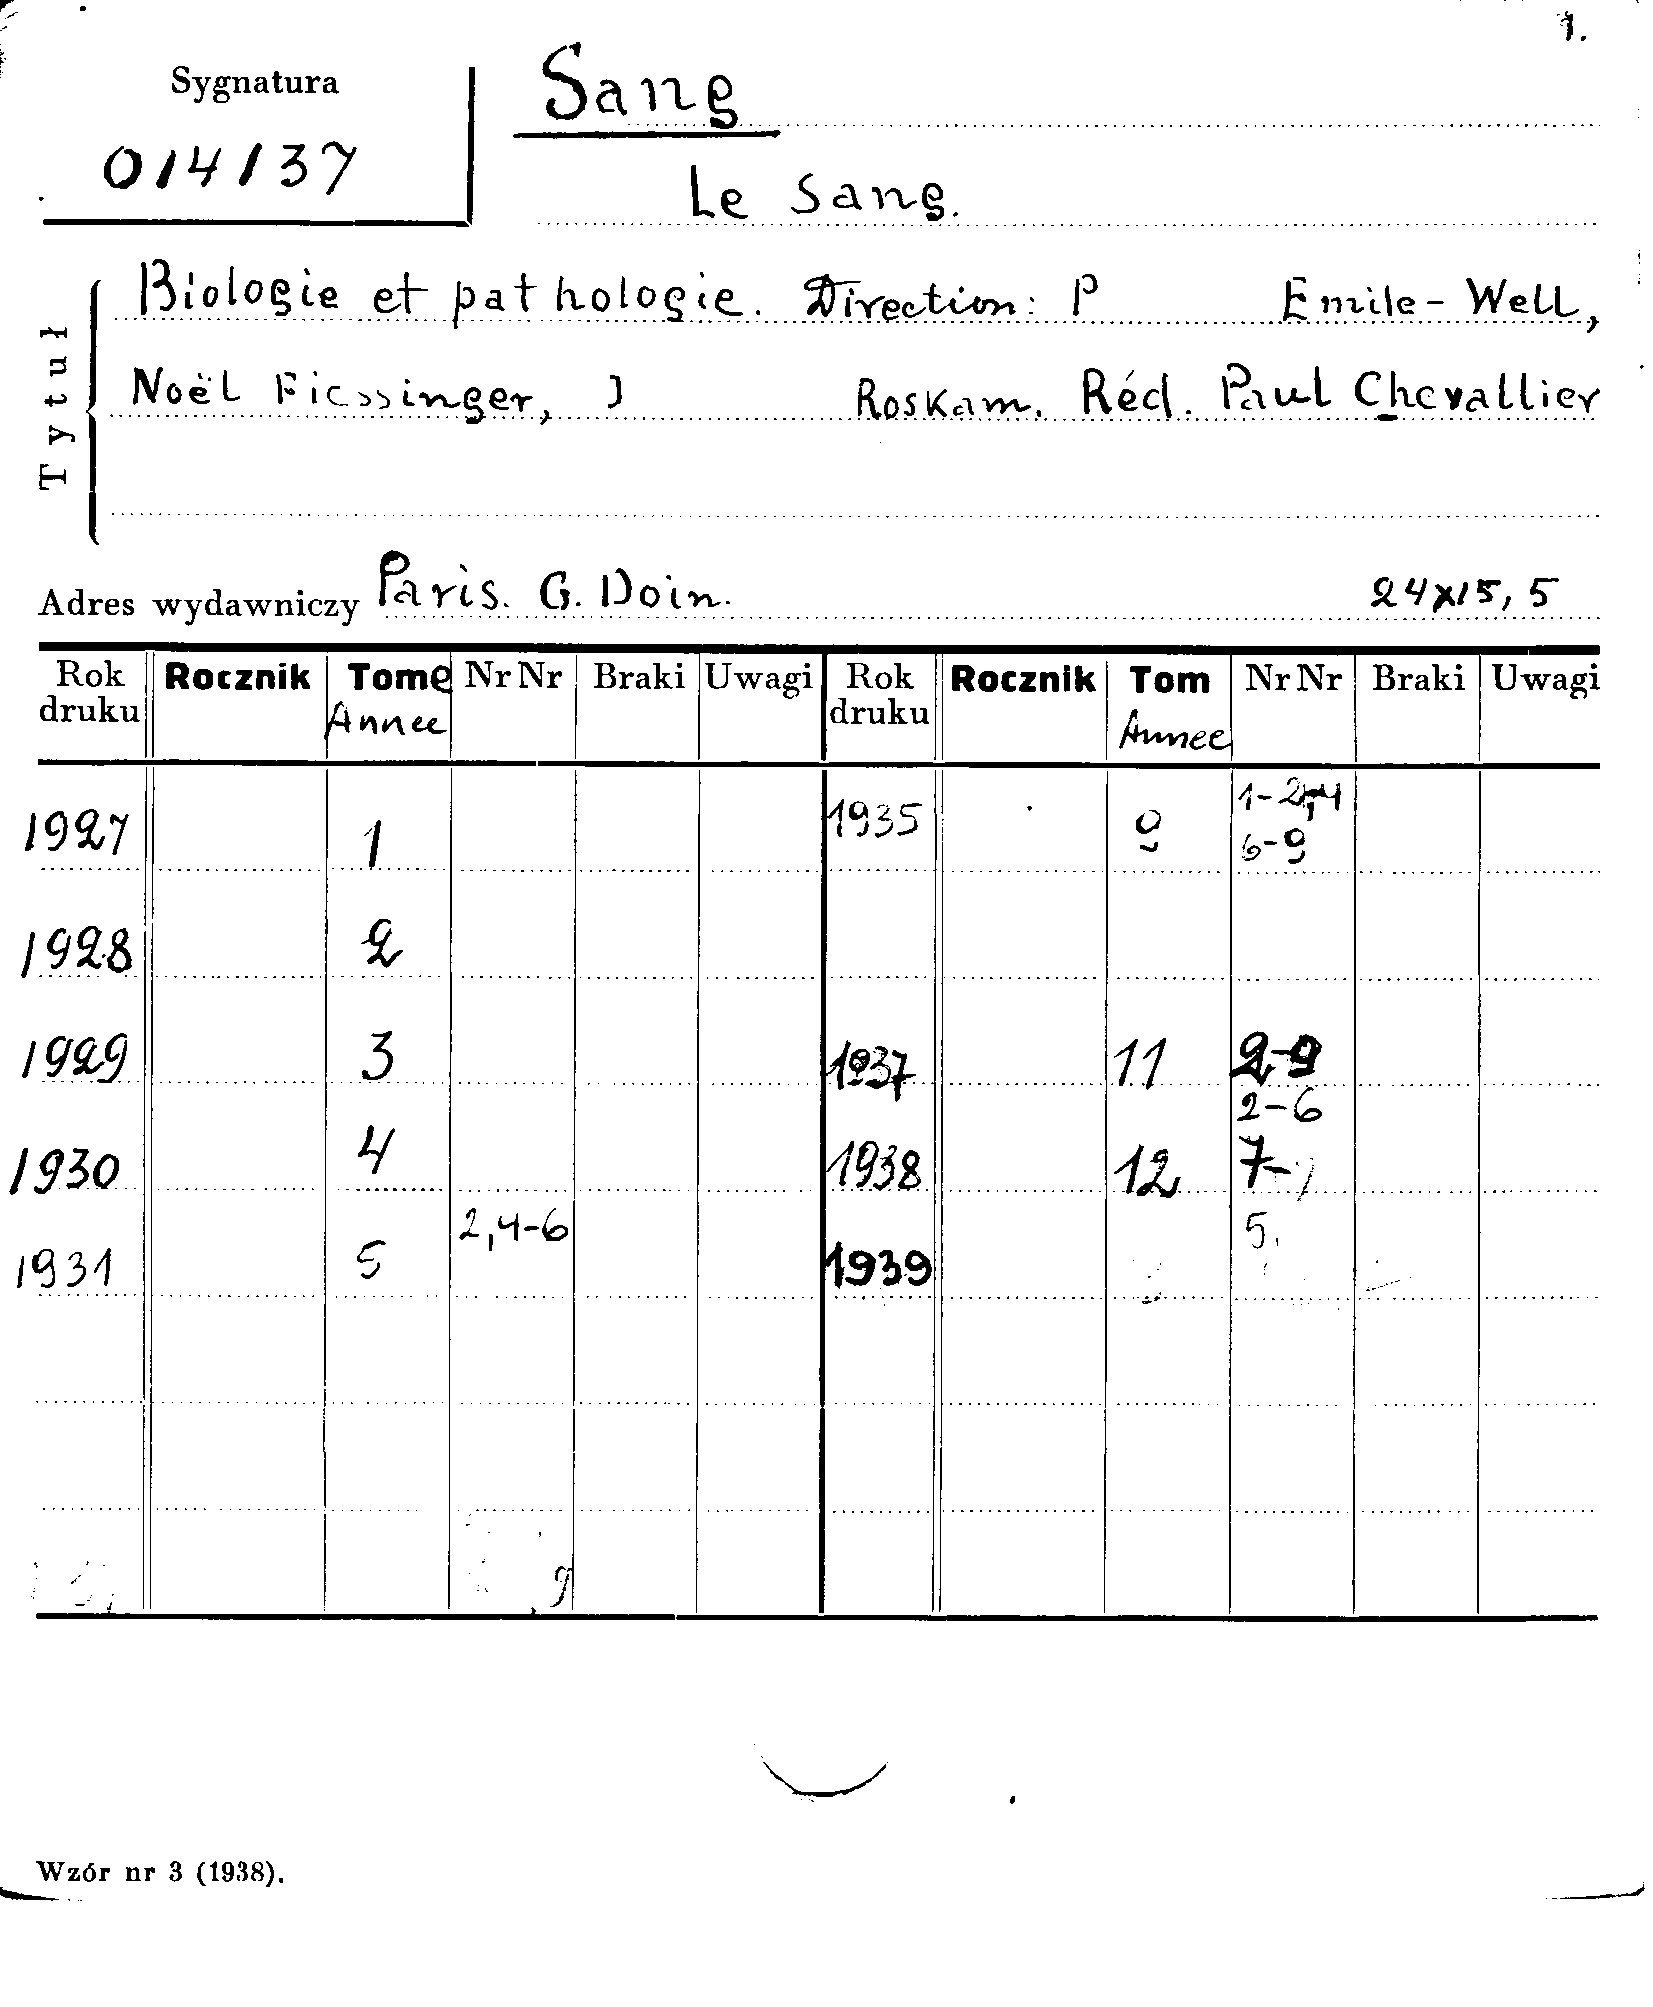 1.
Sygnatura
014137
Sang
Le Sang.
Tytuł
Biologie et pathologie. Direction: P Emile-Well,
Noël Fiessinger, J Roskam. Réd. Paul Chevallier
Adres wydawniczy Paris. G. Doin. 24x15,5
Rok druku Rocznik Tome Annee Nr Nr Braki Uwagi Rok druku Rocznik Tom Annee Nr Nr Braki Uwagi
1927 1 1935 9 1-2,4 6-9
1928 2
1929 3 1937 11 2-9
1930 4 1938 12 2-6 7-
1931 5 2,4-6 1939 5.
9
Wzór nr 3 (1938).